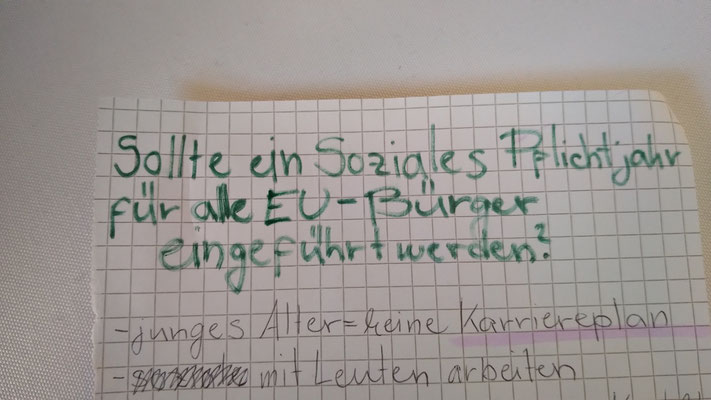 Sollte ein Soziales Pflichtjahr
für alle EU-Bürger
eingeführt werden?
-junges Alter=keine Karriereplan
- mit Leuten arbeiten